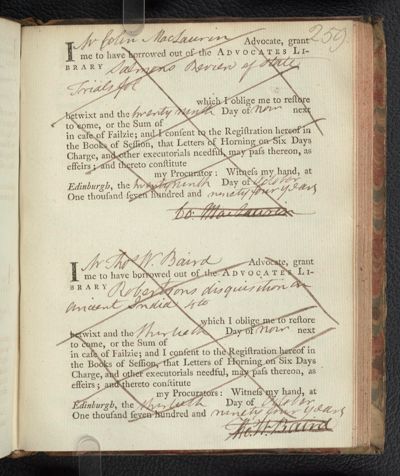 259
I Mr Colin MacLaurin Advocate, grant
me to have borrowed out of the ADVOCATES LI-
BRARY Salmons Review of State
Trials fol
which I oblige me to restore
betwixt and the twenty ninth Day of Novr next
to come, or the Sum of
in case of Failzie; and I consent to the Registration hereof in
the Books of Session, that Letters of Horning on Six Days
Charge, and other executorials needful, may pass thereon, as
effeirs; and thereto constitute
my Procurator: Witness my hand, at
Edinburgh, the twenty ninth Day of October
One thousand seven hundred and ninety four years
Co. MacLaurin
I Mr Thos W. Baird Advocate, grant
me to have borrowed out of the ADVOCATES LI-
BRARY Robertsons disquisition on
ancient India 4to
which I oblige me to restore
betwixt and the thirtieth Day of Novr next
to come, or the Sum of
in case of Failzie; and I consent to the Registration hereof in
the Books of Session, that Letters of Horning on Six Days
Charge, and other executorials needful, may pass thereon, as
effeirs; and thereto constitute
my Procurators: Witness my hand, at
Edinburgh, the thirtieth Day of October
One thousand seven hundred and ninety four years
Tho. W. Baird